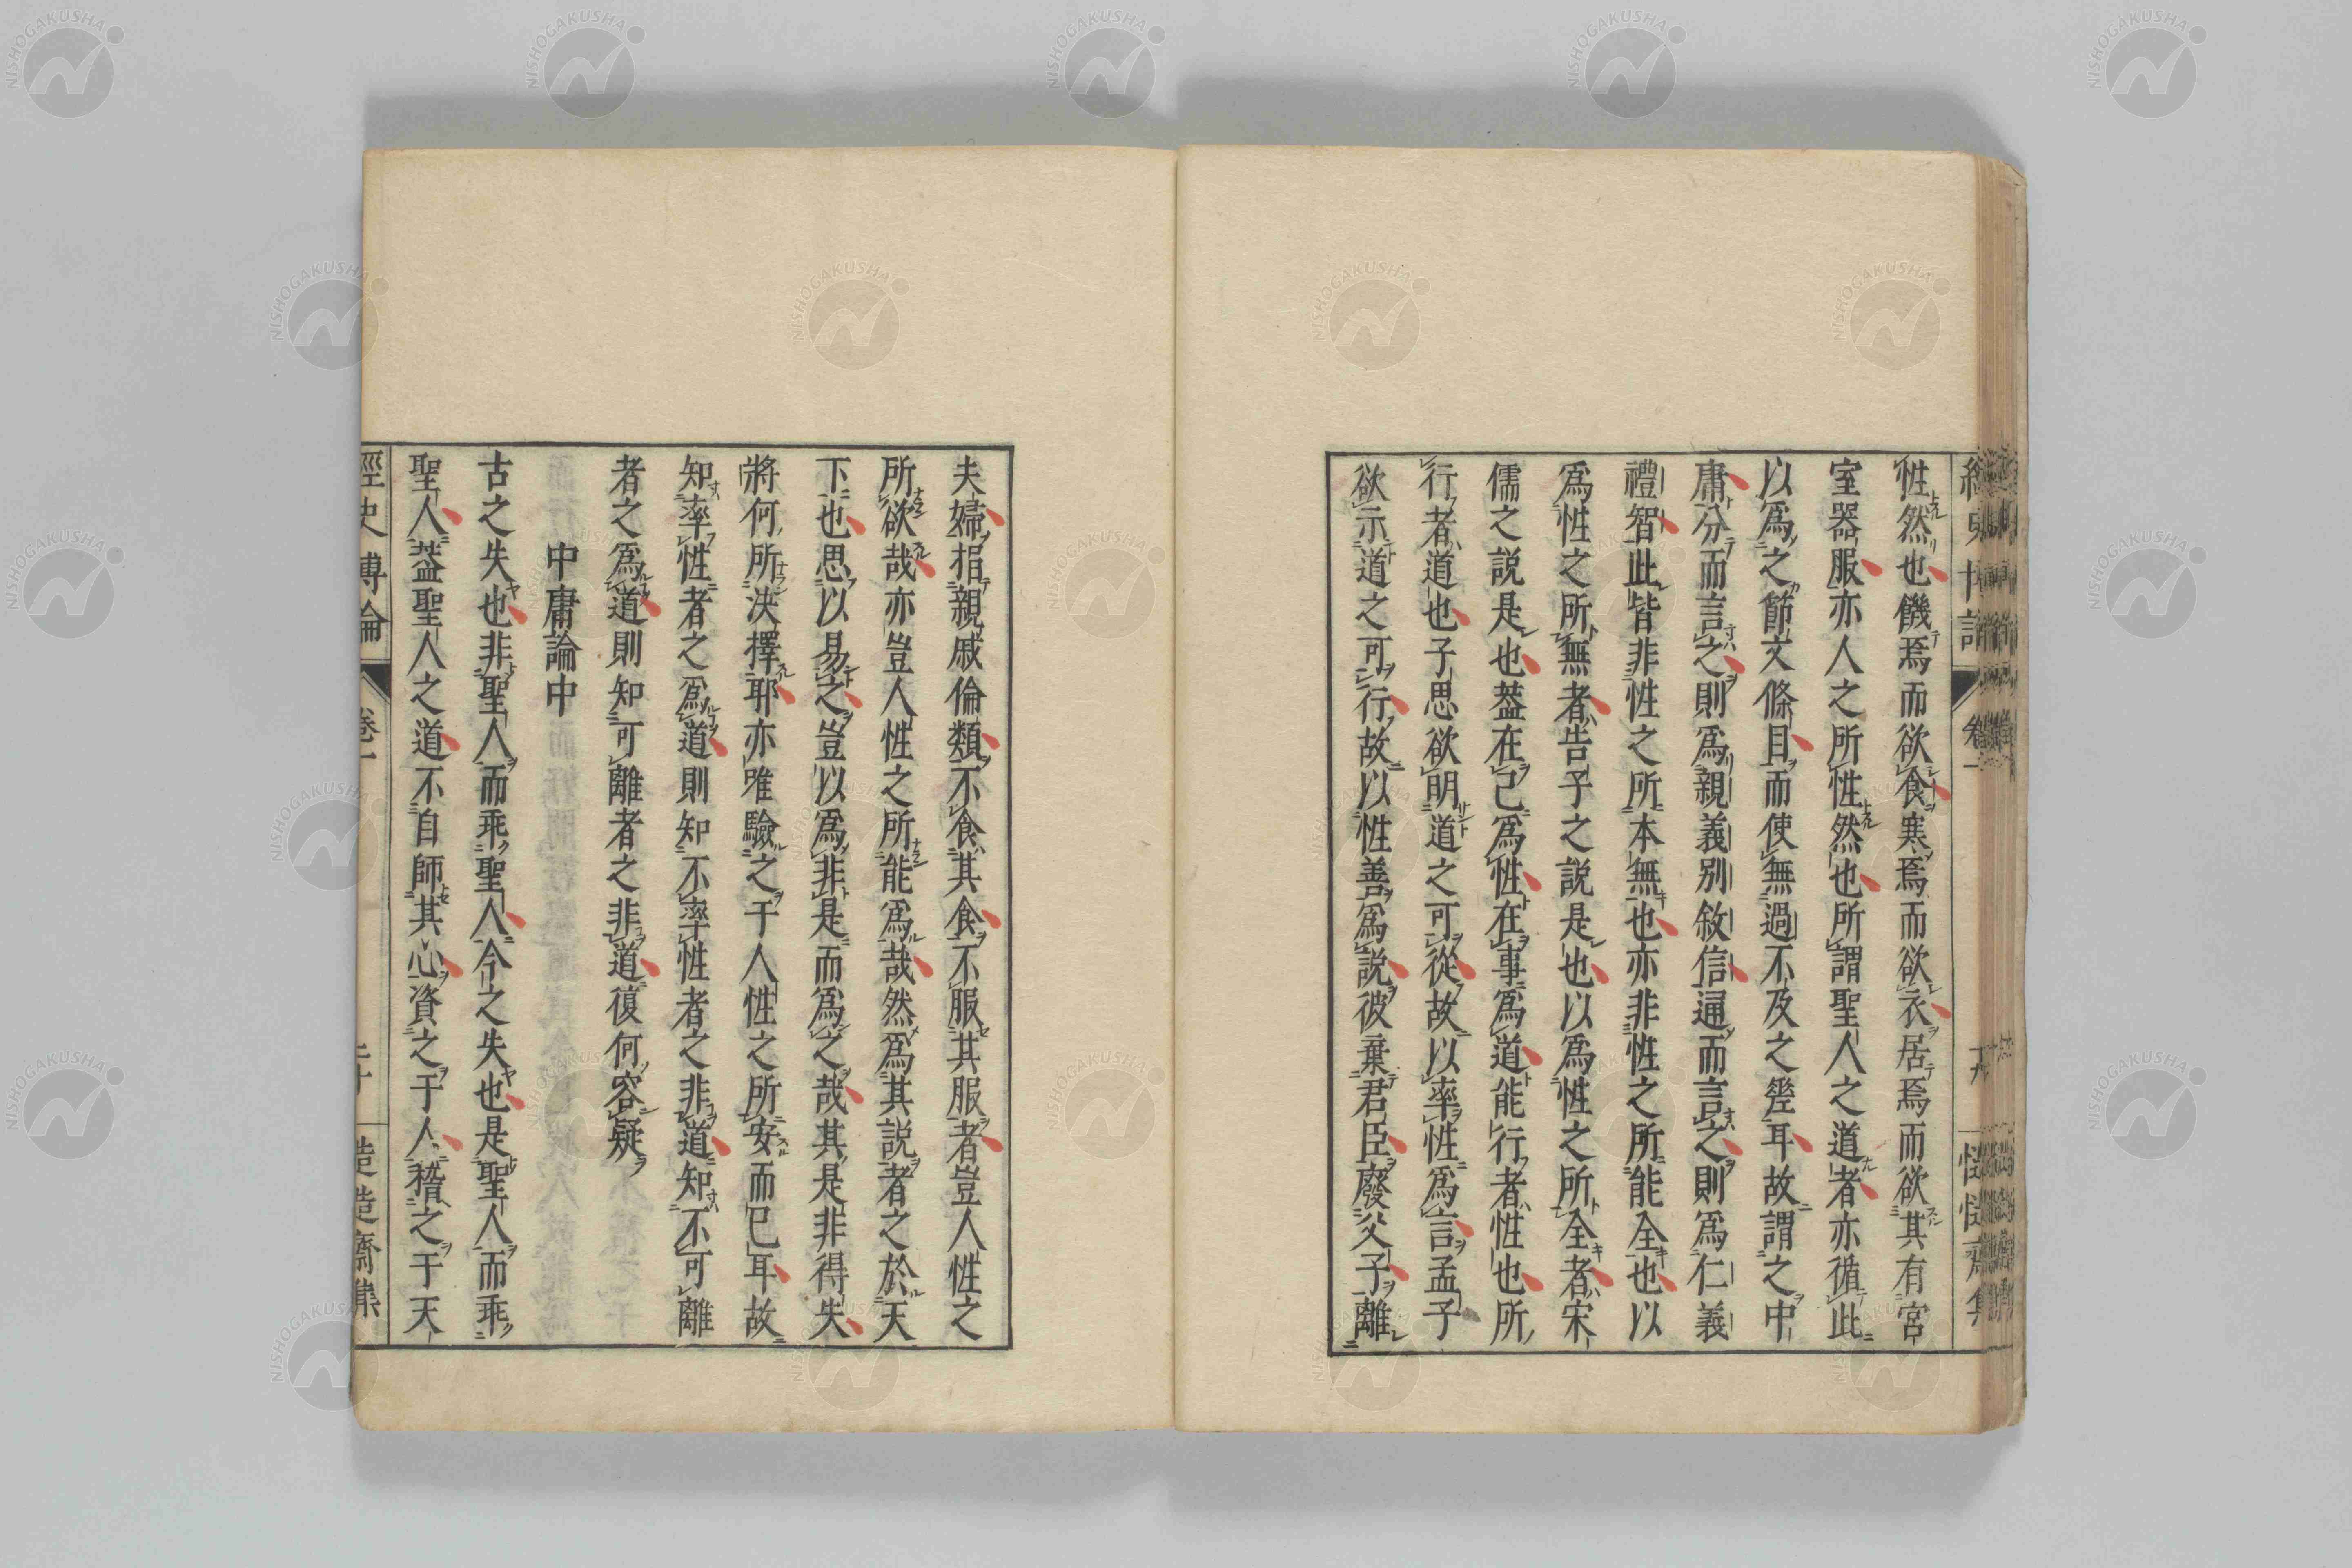 性然也饑焉而欲食寒焉而欲衣居焉而欲其有宮
室器服亦人之所性然也所謂聖人之道者亦循此
以爲之節文條目而使無過不及之㽔耳故謂之中
庸分而言之則爲親義別敘信逼而言之則爲仁義
禮智此皆非性之所本無也亦非性之所能全也以
爲性之所無者告子之說是也以爲性之所全者宋
儒之說是也葢在己爲性在事爲道能行者性也所
行者道也子思欲明道之可從故以率性爲言孟子
欲示道之可行故以性善爲說彼棄君臣廢父子離
夫婦指親戚倫類不食其食不服其服者豈人性之
所欲哉亦豈人性之所能爲哉然爲其說者之於天
下也思以易之豈以爲非是而爲之哉其是非得失
將何所決擇耶亦唯驗之于人性之所安而已耳故
知率性者之爲道則知不率性者之非道知不可離
者之爲道則知可離者之非道復何容疑
中庸論中
古之失也非聖人而乖聖人今之失也是聖人而乖
聖人葢聖人之道不自師其心資之于人稽之于天
經史博論
卷一
二十